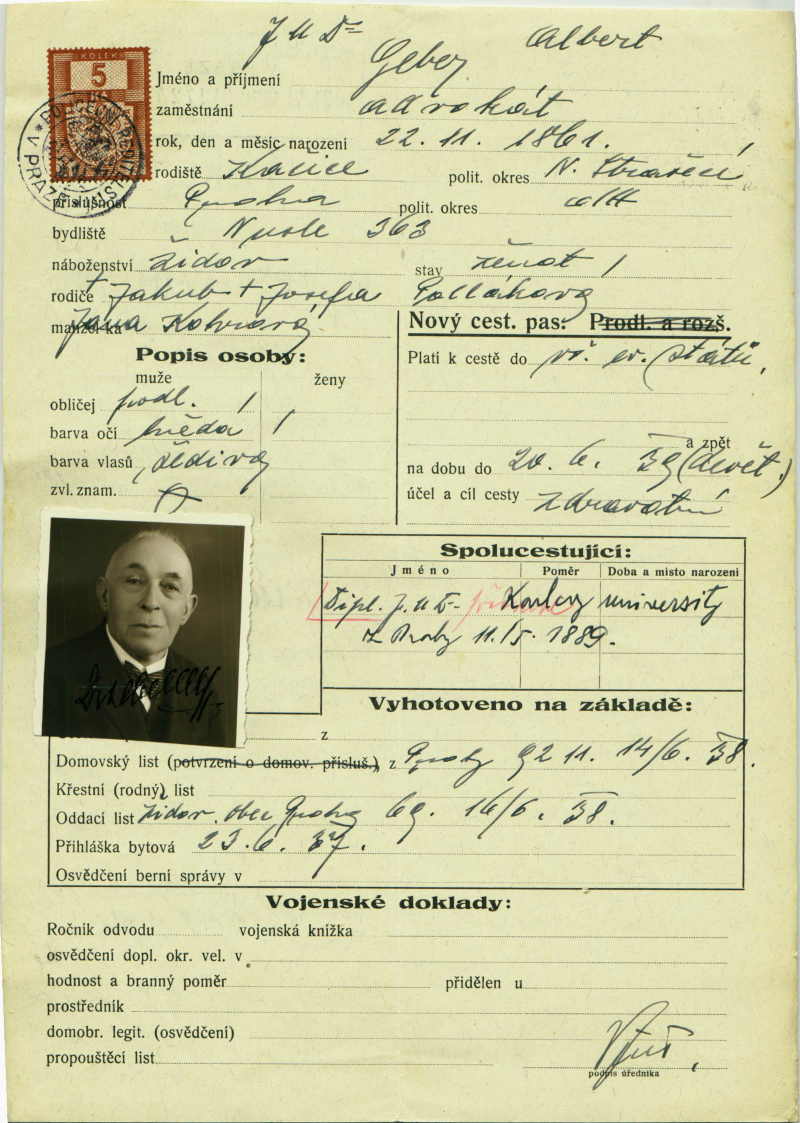 JUDr Geber Albert
KOLEK
5
Jméno a příjmení
zaměstnání advokát
rok, den a měsíc narození 22. 11. 1861.
rodiště Kačice polit. okres N. Strašecí
příslušnost Praha polit. okres
bydliště Nusle 363
náboženství židov stav ženat
rodiče + Jakub + Josefa Polláková
manžel-ka Jana
Nový cest. pas: Prodl. a rozš.
Popis osoby:
muže ženy
Platí k cestě do vš. ev. států,
obličej podl.
barva očí hnědá
a zpět
barva vlasů šedivý
na dobu do 20. 6. 39 (devět.)
zvl. znam.
účel a cíl cesty zdravotní
Spolucestující:
Jméno Poměr Doba a místo narození
Dipl. JUDr Karlovy university
z Prahy 11./5. 1889.
Vyhotoveno na základě:
z
Domovský list (potvrzení o domov. přísluš.) z Prahy 14/6. 38.
Křestní (rodný) list
Oddací list židov. obec Praha 69. 16/6. 38.
Přihláška bytová 23. 6. 37.
Osvědčení berní správy v
Vojenské doklady:
Ročník odvodu vojenská knížka
osvědčení dopl. okr. vel. v
hodnost a branný poměr přidělen u
prostředník
domobr. legit. (osvědčení)
propouštěcí list
podpis úředníka